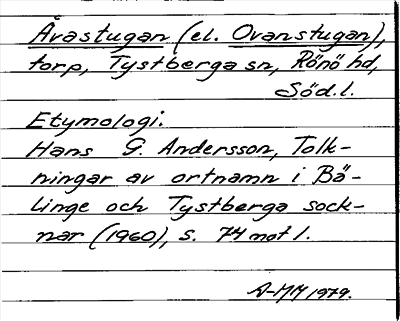 Åvastugan (el. Ovanstugan),
torp, Tystberga sn, Rönö hd,
Söd.l.
Etymologi.
Hans G. Andersson, Tolk-
ningar av ortnamn i Bä-
linge och Tystberga sock-
nar (1960), s. 74 not 1.
A-MM 1979.